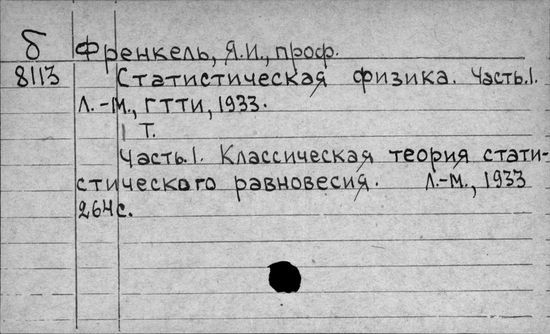 б Френкель, Я.И., проф.
8113 Статистическая физика. Часть.1.
Л.-М., ГТТИ, 1933.
1 Т.
Часть.1. Классическая теория стати-
стического равновесия. Л.-М., 1933
264с.